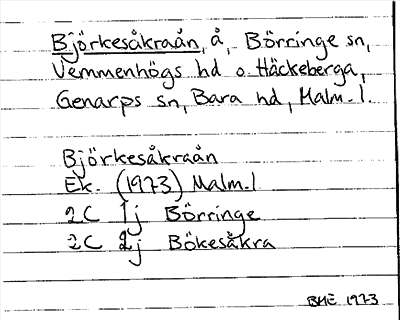 Björkesåkraån, å, Börringe sn,
Vemmenhögs hd o. Häckeberga,
Genarps sn, Bara hd, Malm. l.
Björkesåkraån
Ek. (1973) Malm. l
2C 1j Börringe
2C 2j Bökesåkra
BHE 1973